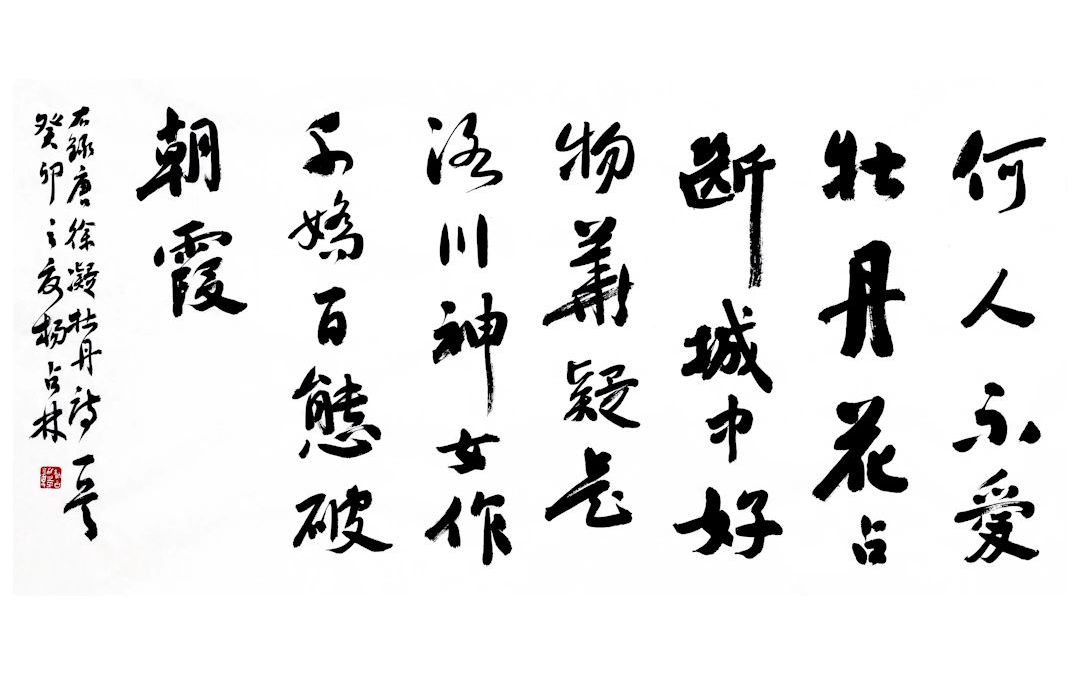 何人不愛
牡丹花占
斷城中好
物華疑是
洛川神女作
千嬌百態破
朝霞
右錄唐徐凝牡丹詩一首
癸卯之夏楊占林